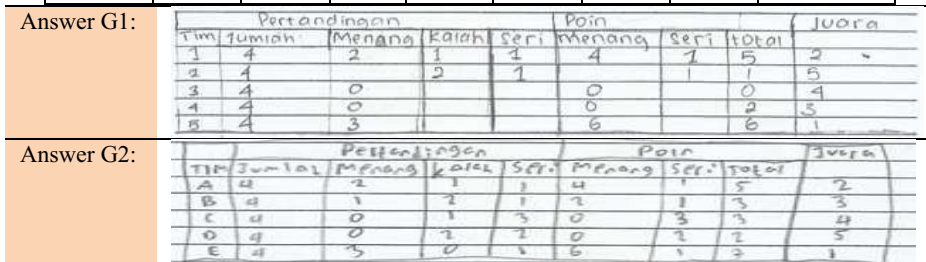 Answer G1:
Pertandingan Poin Juara
Tim Jumlah Menang Kalah Seri Menang Seri total
1 4 2 1 1 4 1 5 2
2 4 2 1 1 1 5
3 4 0 0 0 4
4 4 0 0 2 3
5 4 3 6 6 1
Answer G2:
Pertandingan Poin Juara
TIM Jumlah Menang kalah Seri Menang Seri Total
A 4 2 1 1 4 1 5 2
B 4 1 2 1 2 1 3 3
C 4 0 1 3 0 3 3 4
D 4 0 2 2 0 2 2 5
E 4 3 0 1 6 1 7 1